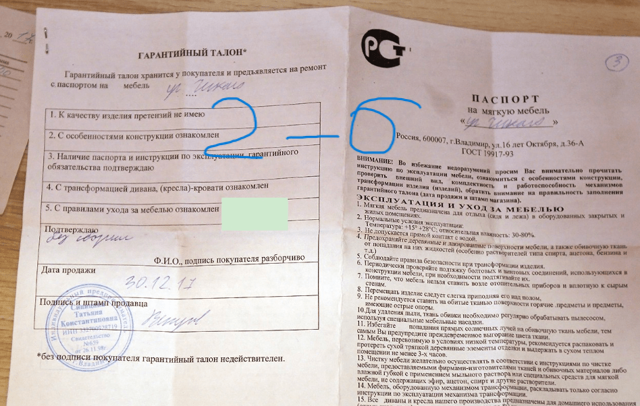 ГАРАНТИЙНЫЙ ТАЛОН*
Гарантийный талон хранится у покупателя и предъявляется на ремонт
с паспортом на мебель уг.
1. К качеству изделия претензий не имею
2. С особенностями конструкции ознакомлен
3. Наличие паспорта и инструкции по эксплуатации, гарантийного
обязательства подтверждаю
4. С трансформацией дивана, (кресла)-кровати ознакомлен
5. С правилами ухода за мебелью ознакомлен
Подтверждаю
Ф.И.О., подпись покупателя разборчиво
Дата продажи
30.12.17
Подпись и штамп продавца
Татьяна
Константиновна
*без подписи покупателя гарантийный талон недействителен.
2 – 6
РСТ
3
ПАСПОРТ
на мягкую мебель
« уг. »
Россия, 600007, г.Владимир, ул.16 лет Октября, д.36-А
ГОСТ 19917-93
ВНИМАНИЕ: Во избежание недоразумений просим Вас внимательно прочитать
инструкцию по эксплуатации мебели, ознакомиться с особенностями конструкции,
проверить внешний вид, комплектность и работоспособность механизмов
трансформации изделия(й), обратить внимание на правильность заполнения
гарантийного талона (дата продажи и штамп магазина).
ЭКСПЛУАТАЦИЯ И УХОД ЗА МЕБЕЛЬЮ
1. Мягкая мебель предназначена для отдыха (сна и лежа) в оборудованных закрытых и
жилых помещениях.
2. Нормальные условия эксплуатации:
Температура: +15° +28°С; относительная влажность: 30-80%
3. Не допускается прямой контакт с водой.
4. Предохраняйте деревянные и лакированные поверхности мебели, а также обивочную ткань
от попадания на них жидкостей (особенно растворителей типа спирта, ацетона, бензина
и т.).
5. Соблюдайте правила безопасности при трансформации изделия.
6. Периодически проверяйте подтяжку болтовых и винтовых соединений, использующихся в
конструкции мебели, при необходимости подтягивайте их.
7. Помните, что мебель нельзя ставить возле отопительных приборов и вплотную к сырым
стенам.
8. Перемещать изделие следует слегка приподняв его над полом.
9. Не рекомендуется ставить на обитые тканью поверхности горячие предметы и предметы,
имеющие острые опоры.
10. Для удаления пыли, ткань обивки необходимо регулярно обрабатывать пылесосом,
используя специальные мебельные насадки.
11. Избегайте попадания прямых солнечных лучей на обивочную ткань мебели, тем
самым Вы предупредите преждевременное выгорание цвета ткани.
12. Мебель, перевозимую в условиях низкой температуры, рекомендуется распаковать и
протереть сухой тряпкой деревянные элементы отделки и выдержать в сухом теплом
помещении не менее 3-х часов.
13. Чистку мебели желательно осуществлять в соответствии с инструкциями по чистке
мебели, предоставляемыми фирмами-изготовителями тканей и обивочных материалов либо
влажной губкой с применением мыльного раствора или специальных средств для мягкой
мебели, не содержащих эфир, ацетон, спирт и другие растворители.
14. Мебель, оборудованную механизмом трансформации, раскладывать только согласно
инструкции по эксплуатации механизма трансформации.
15. Все диваны и кресла нашего производства предназначены для домашнего использования